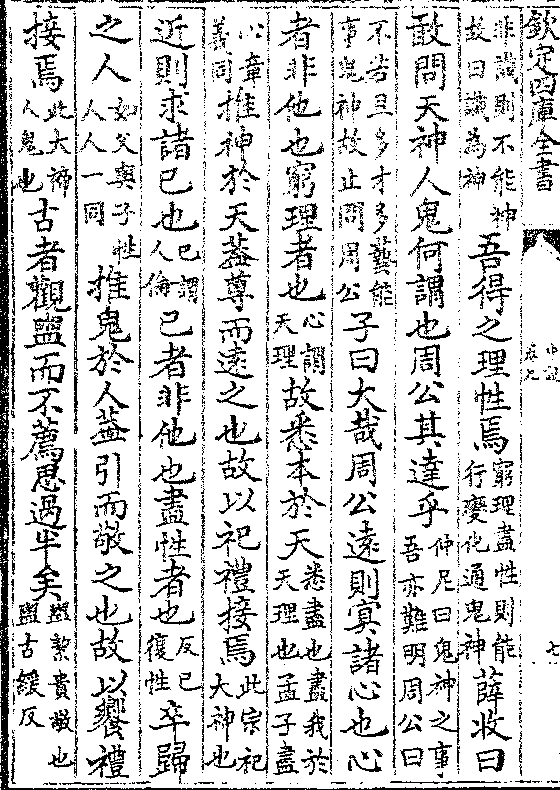 欽定四庫全書
中說
卷七
七
非識則不能神
故曰識為神
吾得之理性焉
窮理盡性則能
行變化通鬼神
薛收曰
敢問天神人鬼何謂也周公其達乎
仲尼曰鬼神之事
吾亦難明周公曰
不若旦多才多藝能
事鬼神故止問周公
子曰大哉周公遠則㝠諸心也心
者非他也窮理者也
心謂
天理
故悉本於天
悉盡也盡我於
天理也孟子盡
心章
義同
推神於天葢尊而遠之也故以祀禮接焉
此宗祀
大神也
近則求諸己也
己謂
人倫
己者非他也盡性者也
反己
復性
卒歸
之人
如父與子性
人人一同
推鬼於人葢引而敬之也故以饗禮
接焉
此大禘
人鬼也
古者觀盥而不薦思過半矣
盥絜貴敬也
盥古緩反